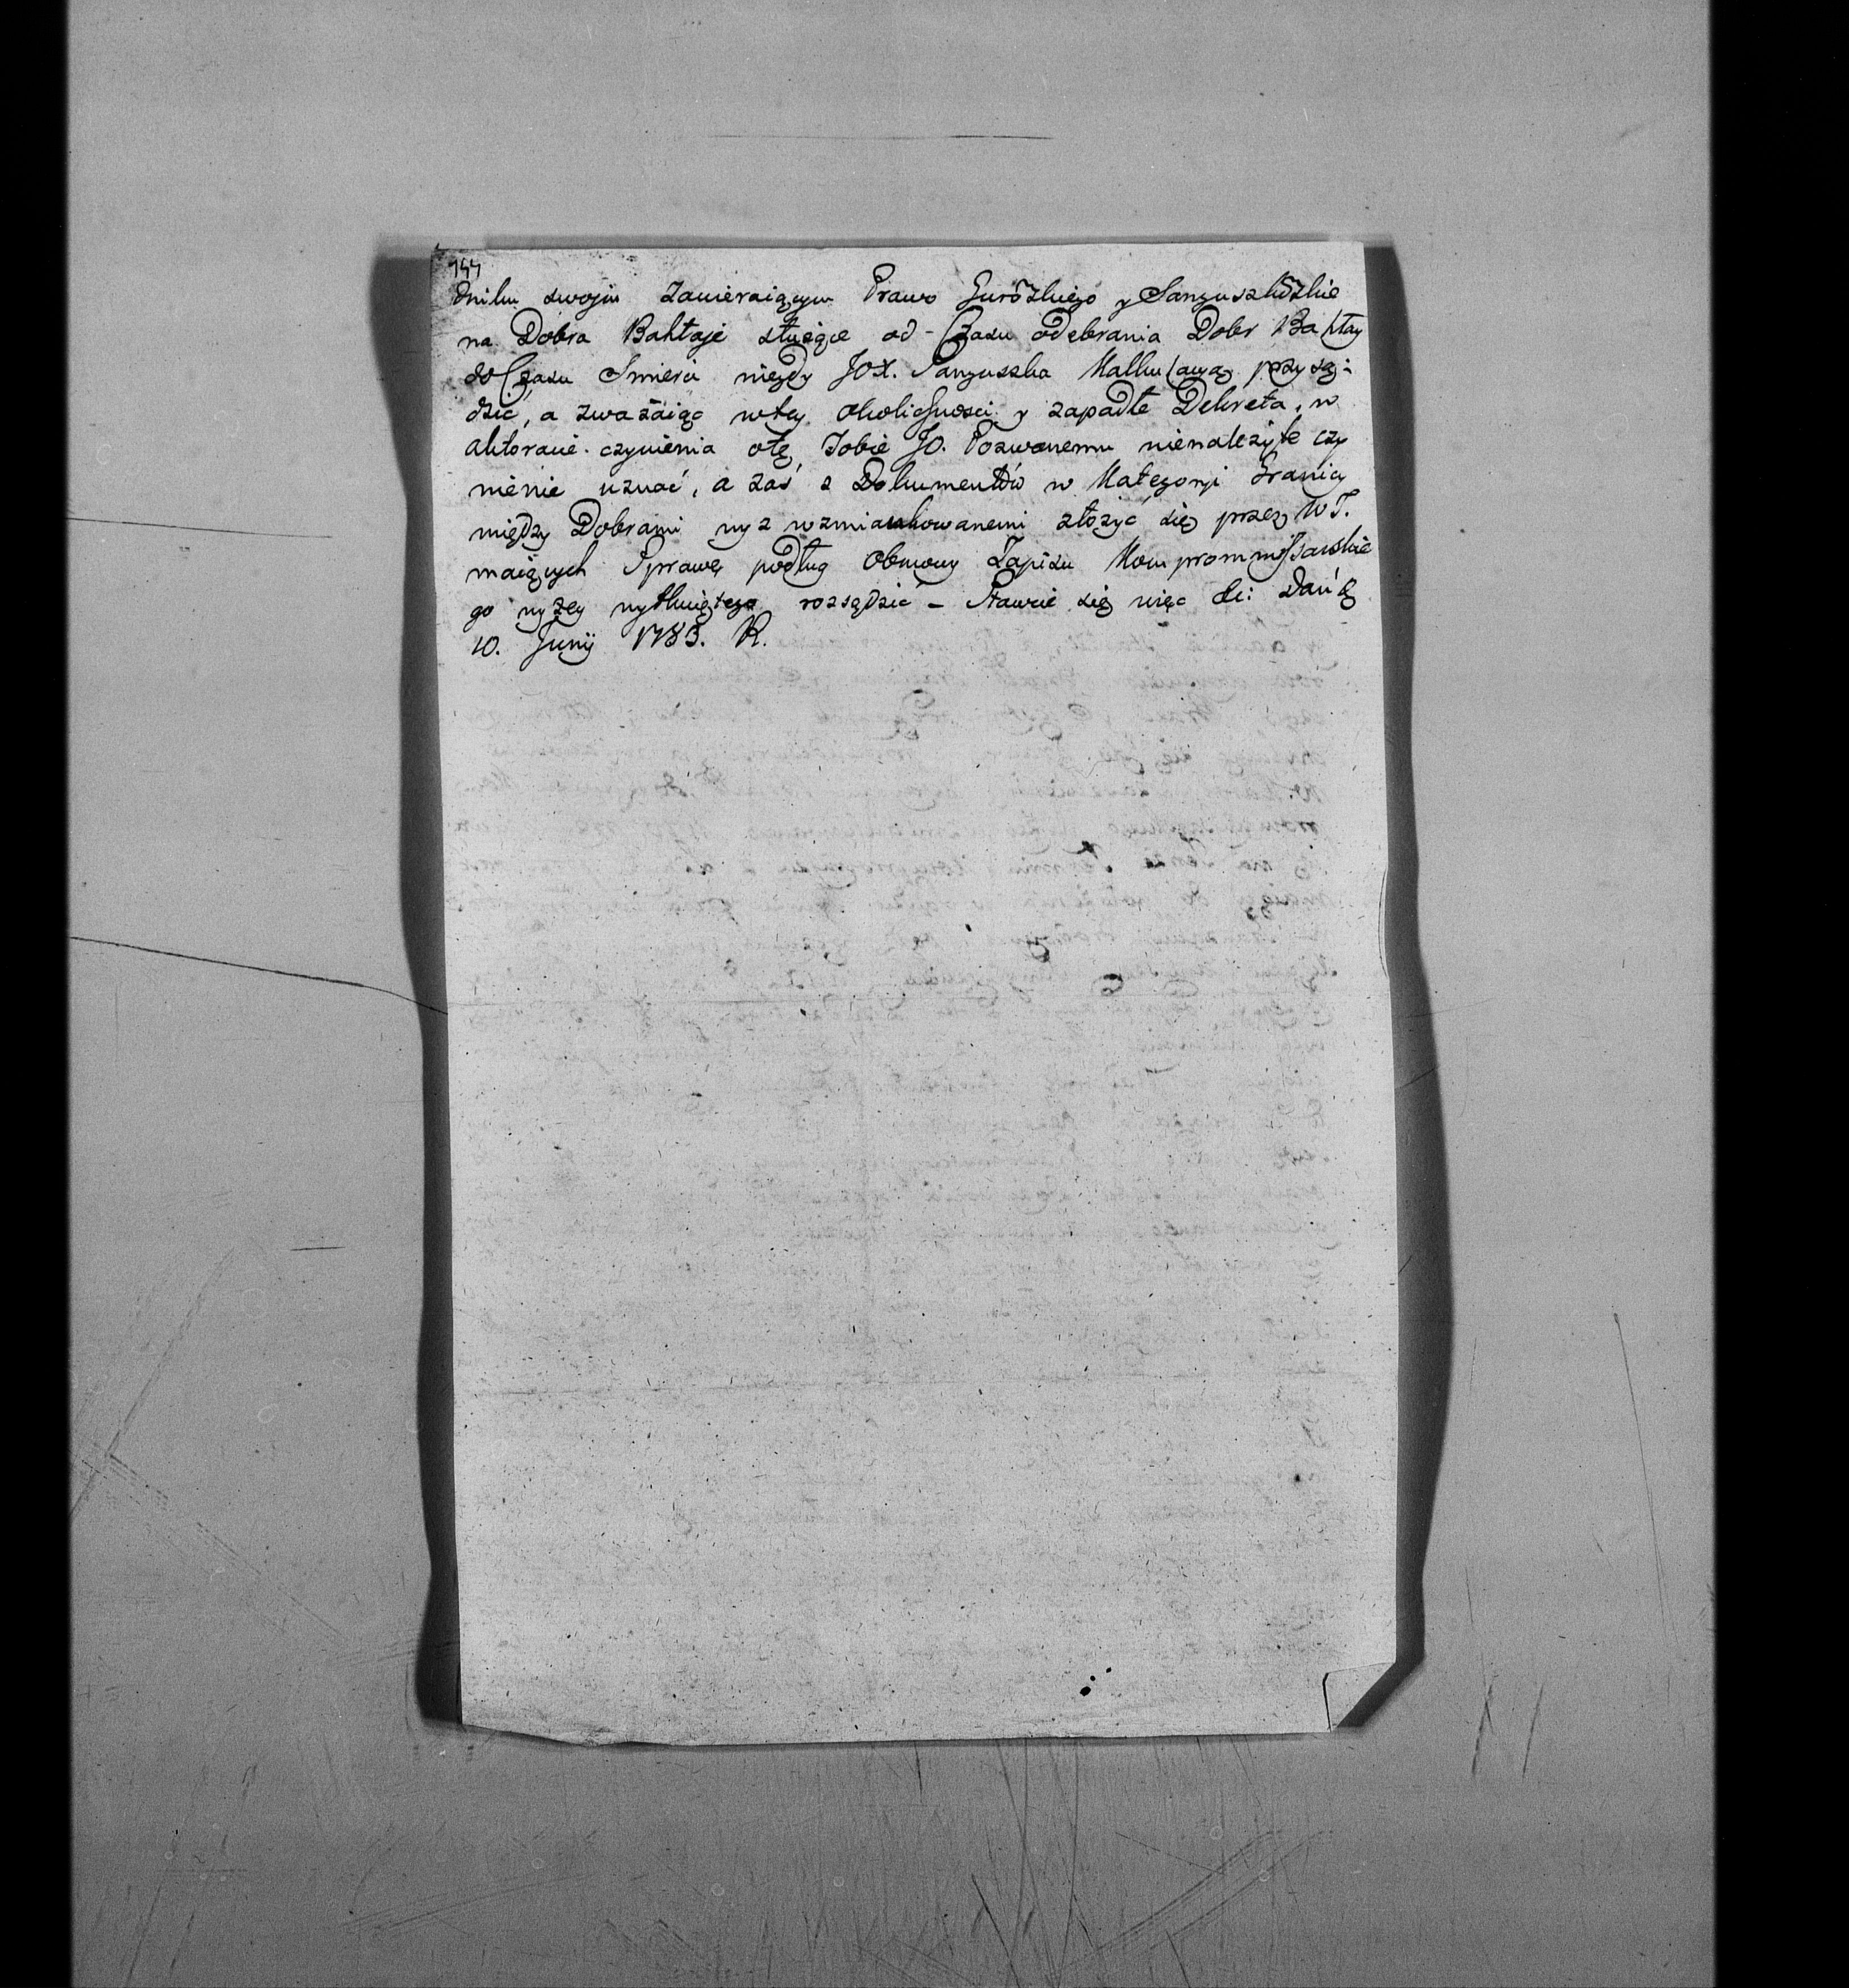 144
dniku swojm zawieraiącym Prawo Juróżkiego y Sanguszkózkie
na Dobra Bakłaje służące od-Czasu odebrania Dobr Bakłay
do Czasu Smierci niegdy JOX. Sanguszka Malku przysą-
dzić, a zważaiąc wtey okoliczności y zapadłe Dekreta, w
aktoracie czynienia otę Tobie JO. Pozwanemu nienależyte czy
nienie uznać, a zaś z Dokumentów w Kategorji Granicy
między Dobrami wyz wzmiankowanemi złożyć się przez W T.
maiących Sprawę podług Obmowy Zapisu Kompromissarskie
go wyżey wytkniętego rozsądzić - Stawcie się więc &c: Dań d
10. Junij 1783. R.